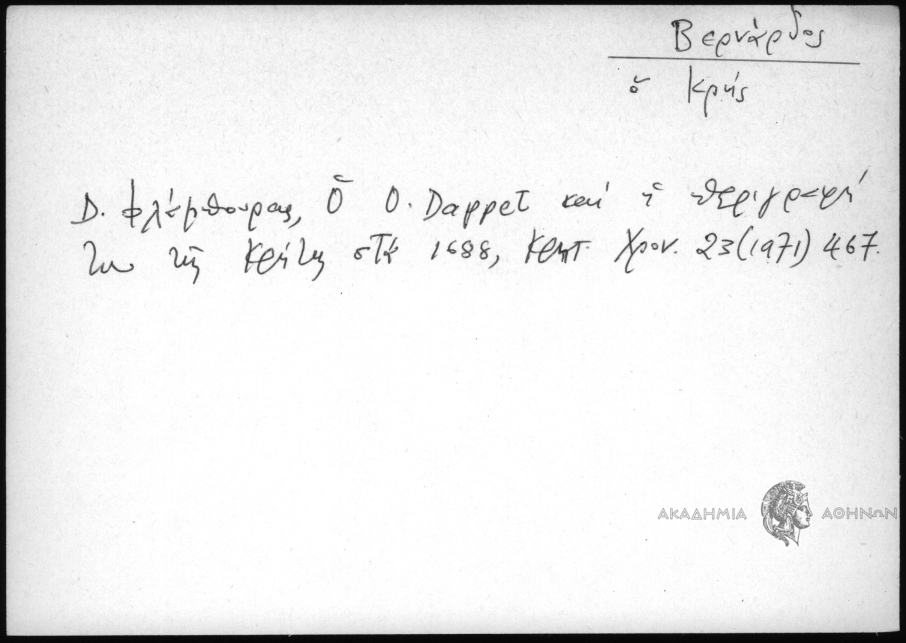 Βερνάρδος
ὁ Κρής
D. Φλέμπουρας, Ὁ O. Dappet καὶ ἡ περιγραφή
του τῆς Κρήτης στά 1688, Κρητ. Χρον. 23(1971) 467.
ΑΚΑΔΗΜΙΑ ΑΘΗΝΩΝ